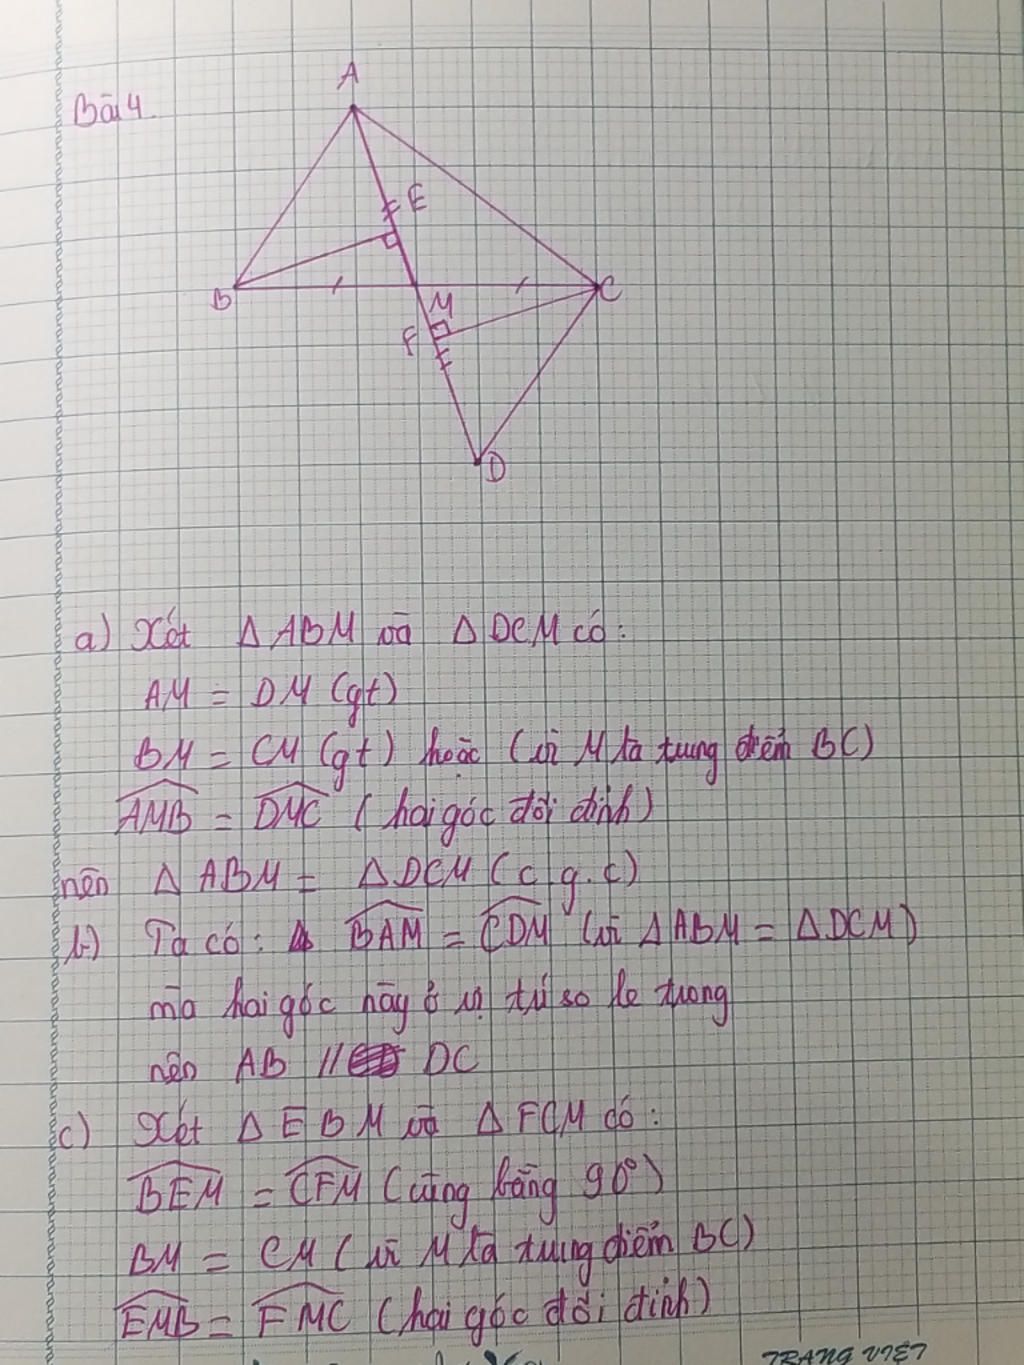 Bài 4
A
E
B
M
C
F
D
a) Xét Δ ABM và Δ DCM có:
AM = DM (gt)
BM = CM (gt) hoặc (vì M là trung điểm BC)
\widehat{AMB} = \widehat{DMC} (hai góc đối đỉnh)
nên Δ ABM = Δ DCM (c.g.c)
b) Ta có: \widehat{BAM} = \widehat{CDM} (vì Δ ABM = Δ DCM)
mà hai góc này ở vị trí so le trong
nên AB // DC
c) Xét Δ EBM và Δ FCM có:
\widehat{BEM} = \widehat{CFM} (cùng bằng 90°)
BM = CM (vì M là trung điểm BC)
\widehat{EMB} = \widehat{FMC} (hai góc đối đỉnh)
TRANG VIẾT